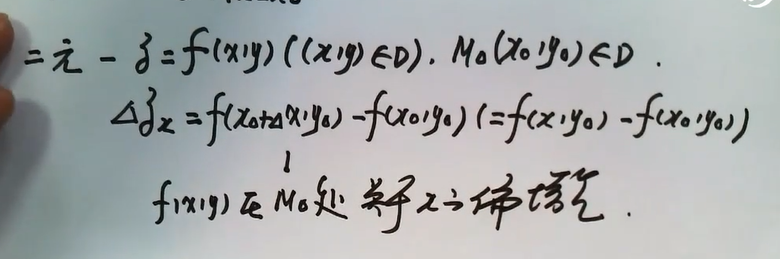 = 元 - z = f(x,y) ((x,y)∈D). M₀(x₀,y₀)∈D.
Δz_x = f(x₀+Δx,y₀) - f(x₀,y₀) (= f(x,y₀) - f(x₀,y₀))
↓
f(x,y) 在 M₀ 处 关于 x 之 偏增量.